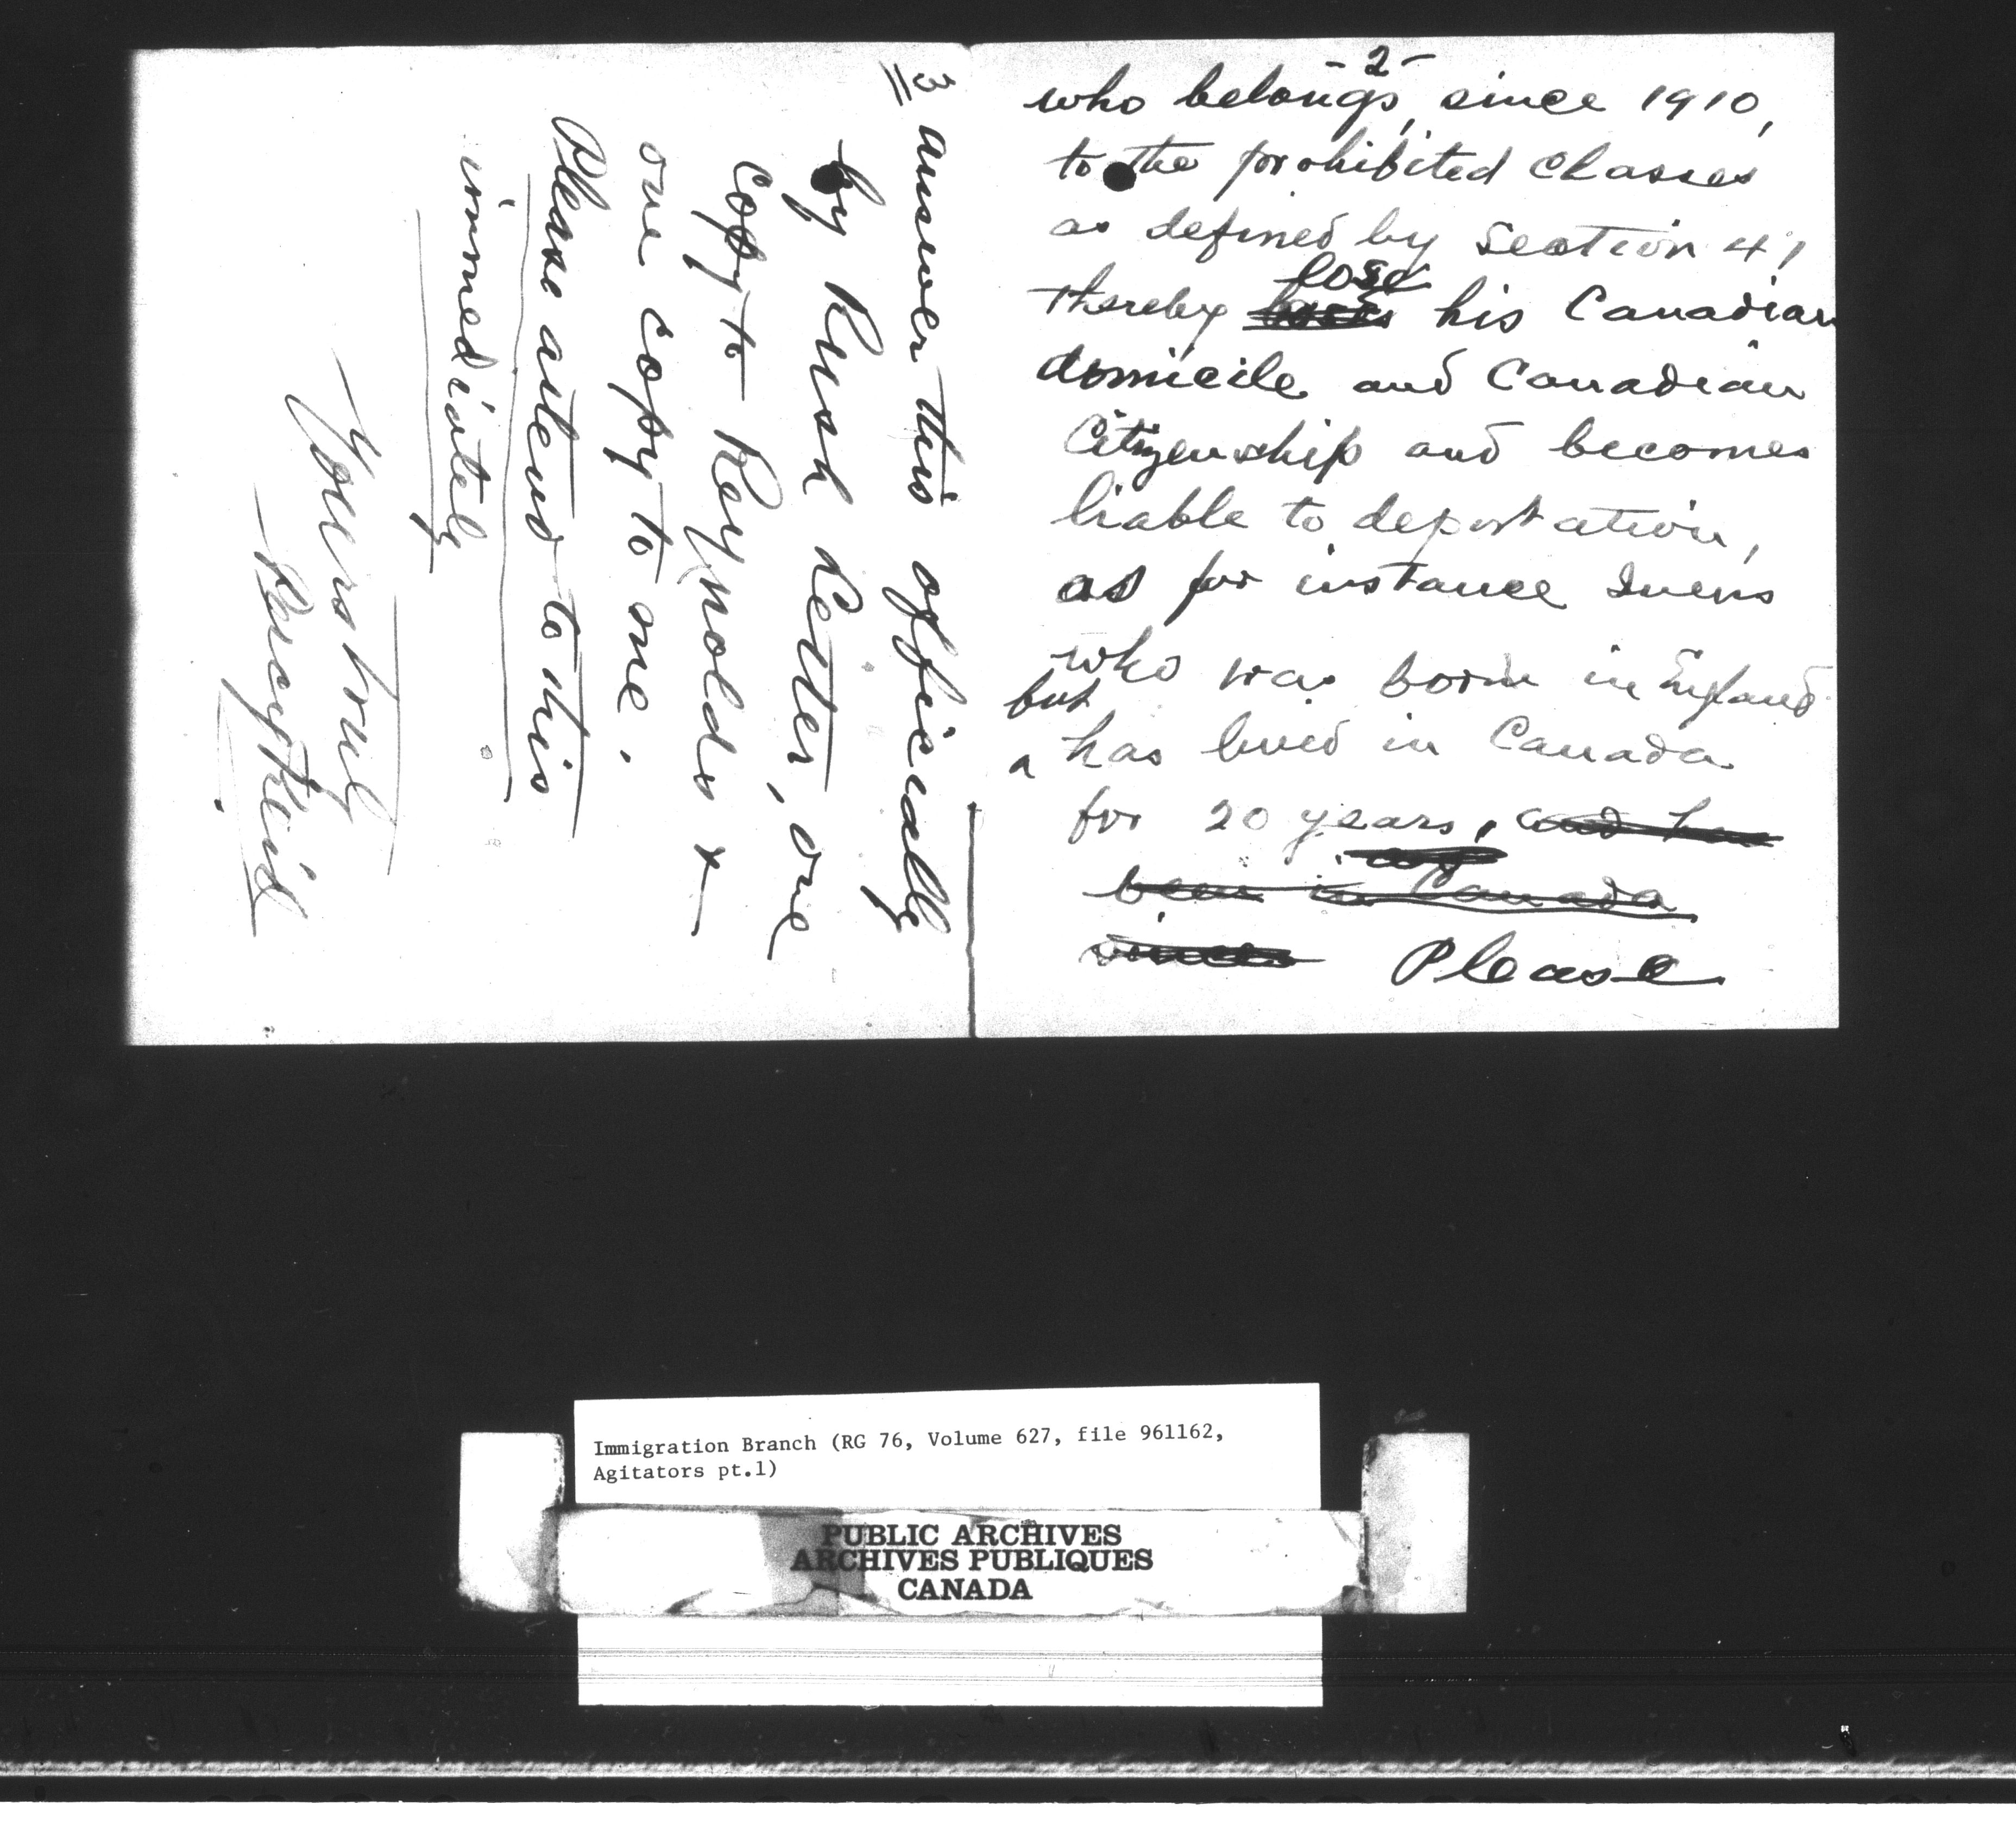 -2-
who belongs, since 1910,
to the prohibited classes
as defined by Section 41
thereby lose his Canadian
domicile and Canadian
Citizenship and becomes
liable to deportation,
as for instance Ivens
who was born in England
but
^ has lived in Canada
for 20 years, and has
been in Canada
Please
3
answer this officially
by Rush Letter, one
copy to Reynolds &
one copy to me.
Please attend to this
immediately
Yours truly
Immigration Branch (RG 76, Volume 627, file 961162,
Agitators pt.1)
PUBLIC ARCHIVES
ARCHIVES PUBLIQUES
CANADA